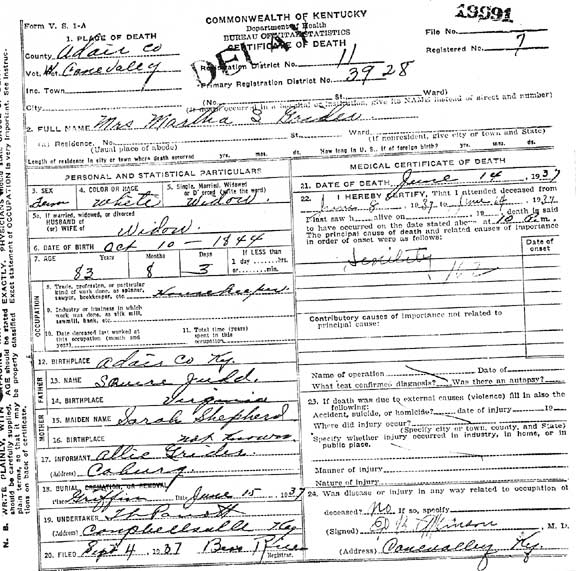 Form V. S. 1-A
COMMONWEALTH OF KENTUCKY
Department of Health
BUREAU OF VITAL STATISTICS
CERTIFICATE OF DEATH
19991
File No.
Registered No. 7
DELAY
1. PLACE OF DEATH
County Adair Co
Vot. Pct. Canevalley
Inc. Town
City
Registration District No. 11
Primary Registration District No. 3928
(No. St. Ward)
(If death occurred in a hospital or institution, give its NAME instead of street and number)
2. FULL NAME Mrs Martha S Grider
(a) Residence. No. St. Ward.
(Usual place of abode) (If nonresident, give city or town and State)
Length of residence in city or town where death occurred yrs. mos. ds. How long in U. S. if of foreign birth? yrs. mos. ds.
PERSONAL AND STATISTICAL PARTICULARS
3. SEX Fem
4. COLOR OR RACE White
5. Single, Married, Widowed or Divorced (write the word) Widow
5a. If married, widowed, or divorced
HUSBAND of
(or) WIFE of Widow
6. DATE OF BIRTH Oct 10 - 1844
7. AGE Years Months Days If LESS than
1 day hrs.
or min.
83 8 3
OCCUPATION
8. Trade, profession, or particular kind of work done, as spinner, sawyer, bookkeeper, etc. Housekeeper
9. Industry or business in which work was done, as silk mill, sawmill, bank, etc.
10. Date deceased last worked at this occupation (month and year)
11. Total time (years) spent in this occupation
12. BIRTHPLACE Adair Co Ky.
FATHER
13. NAME Squire Judd
14. BIRTHPLACE Virginia
MOTHER
15. MAIDEN NAME Sarah Shepherd
16. BIRTHPLACE not known
17. INFORMANT Allie Grider
(Address) Coburg
18. BURIAL, CREMATION, OR REMOVAL
Place Griffin Date June 15 1937
19. UNDERTAKER
(Address) Campbellsville Ky
20. FILED Sept 4 1937
Registrar.
MEDICAL CERTIFICATE OF DEATH
21. DATE OF DEATH June 14, 1937
22. I HEREBY CERTIFY, That I attended deceased from
June 8 1937 to June 14 1937
I last saw h alive on , death is said
to have occurred on the date stated above at 10 a.m.
The principal cause of death and related causes of importance in order of onset were as follows:
Date of onset
Senility 162
Contributory causes of importance not related to principal cause:
Name of operation Date of
What test confirmed diagnosis? Was there an autopsy?
23. If death was due to external causes (violence) fill in also the following:
Accident, suicide, or homicide? date of injury 19
Where did injury occur?
(Specify city or town, county, and State)
Specify whether injury occurred in industry, in home, or in public place.
Manner of injury
Nature of injury
24. Was disease or injury in any way related to occupation of
deceased? No If so, specify
(Signed) M. D.
(Address) Canevalley Ky.